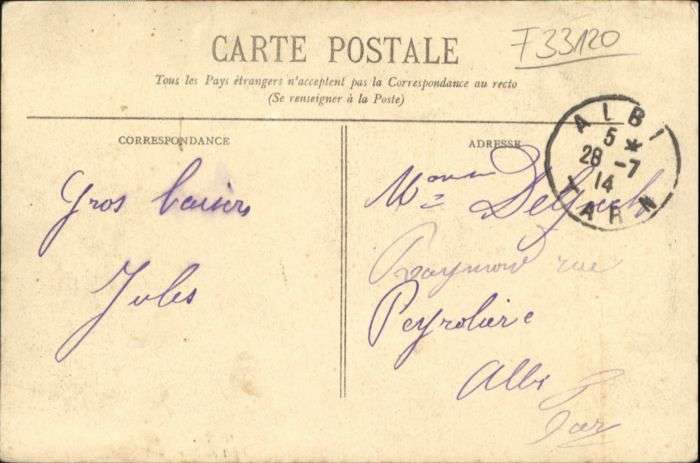 CARTE POSTALE
F33120
Tous les Pays étrangers n'acceptent pas la Correspondance au recto
(Se renseigner à la Poste)
CORRESPONDANCE
ADRESSE
ALBI
5 *
28 -7
14
TARN
Gros baisers
Jules
Raymond rue
Peyrolière
Albi